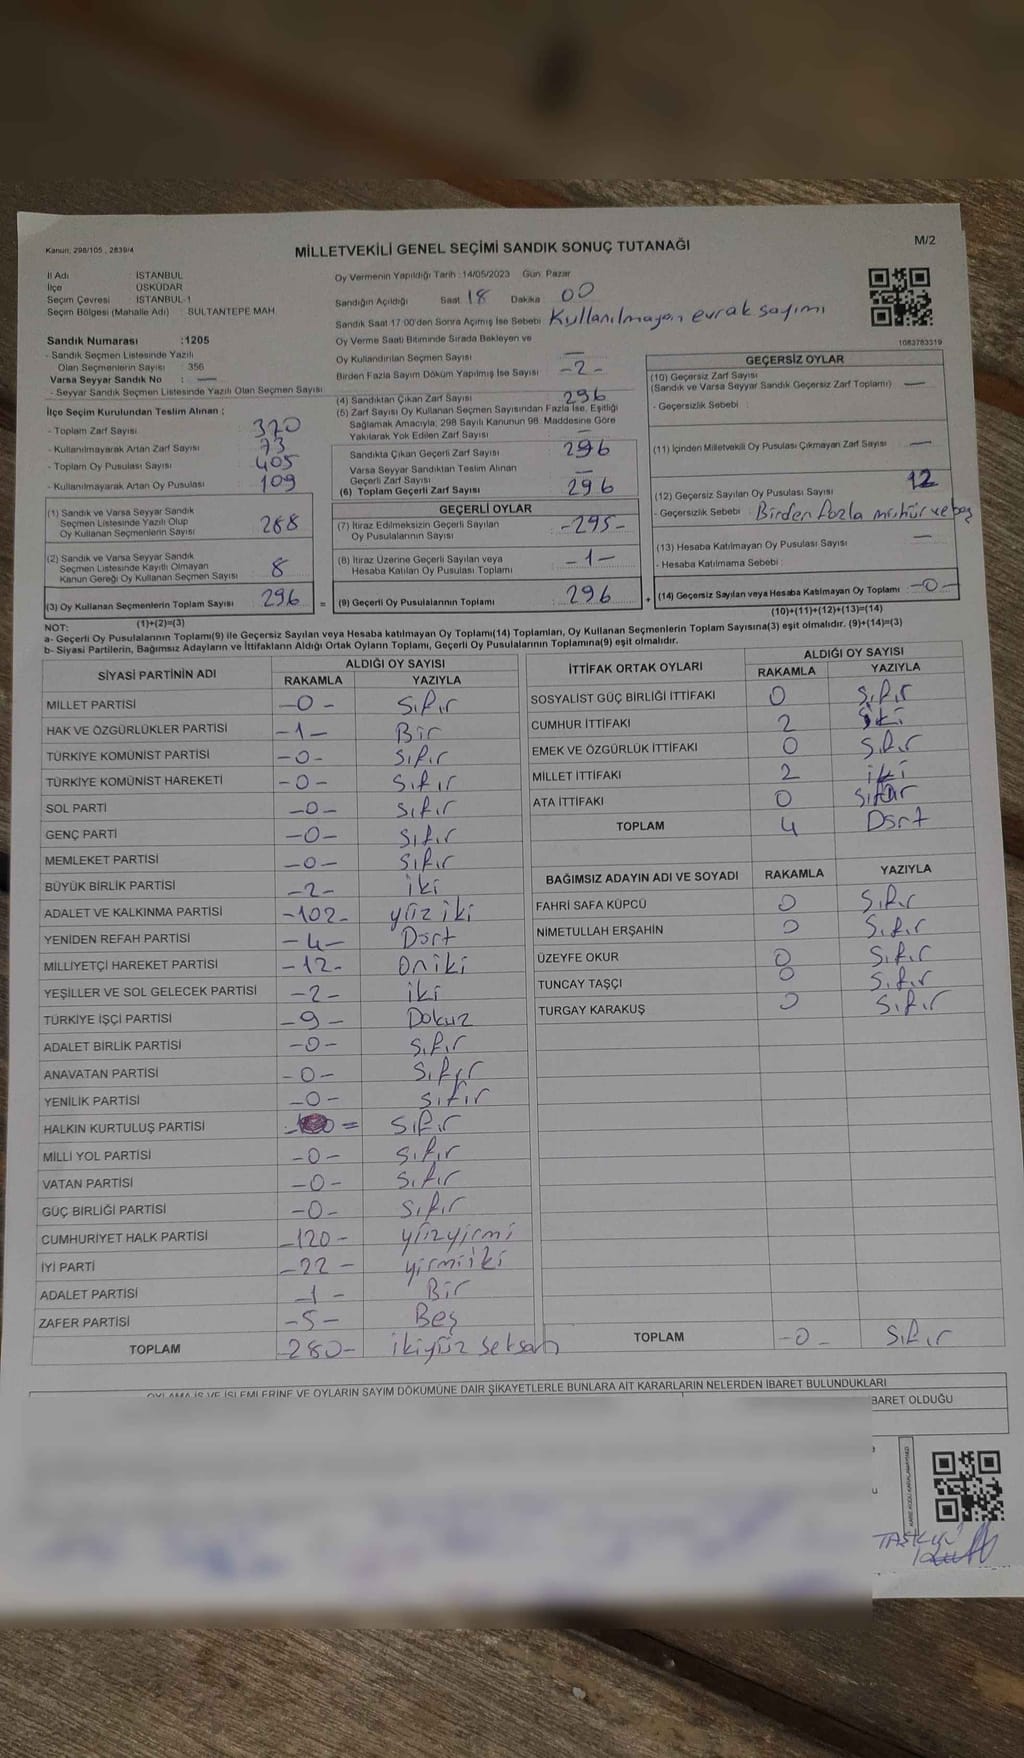 Kanun: 298/105 , 2839/4
MİLLETVEKİLİ GENEL SEÇİMİ SANDIK SONUÇ TUTANAĞI
M/2
İl Adı : İSTANBUL
İlçe : ÜSKÜDAR
Seçim Çevresi : İSTANBUL-1
Seçim Bölgesi (Mahalle Adı) : SULTANTEPE MAH.
Sandık Numarası :1205
- Sandık Seçmen Listesinde Yazılı
Olan Seçmenlerin Sayısı : 356
Varsa Seyyar Sandık No : —
- Seyyar Sandık Seçmen Listesinde Yazılı Olan Seçmen Sayısı :
İlçe Seçim Kurulundan Teslim Alınan ;
- Toplam Zarf Sayısı : 370
- Kullanılmayarak Artan Zarf Sayısı : 73
- Toplam Oy Pusulası Sayısı : 405
- Kullanılmayarak Artan Oy Pusulası : 109
(1) Sandık ve Varsa Seyyar Sandık
Seçmen Listesinde Yazılı Olup
Oy Kullanan Seçmenlerin Sayısı : 288
(2) Sandık ve Varsa Seyyar Sandık
Seçmen Listesinde Kayıtlı Olmayan
Kanun Gereği Oy Kullanan Seçmen Sayısı : 8
(3) Oy Kullanan Seçmenlerin Toplam Sayısı : 296
(1)+(2)=(3)
Oy Vermenin Yapıldığı Tarih : 14/05/2023 Gün: Pazar
Sandığın Açıldığı Saat 18 Dakika : 00
Sandık Saat 17:00'den Sonra Açılmış İse Sebebi : Kullanılmayan evrak sayımı
Oy Verme Saati Bitiminde Sırada Bekleyen ve
Oy Kullandırılan Seçmen Sayısı : —
Birden Fazla Sayım Döküm Yapılmış İse Sayısı : -2-
(4) Sandıktan Çıkan Zarf Sayısı : 296
(5) Zarf Sayısı Oy Kullanan Seçmen Sayısından Fazla İse, Eşitliği
Sağlamak Amacıyla; 298 Sayılı Kanunun 98. Maddesine Göre
Yakılarak Yok Edilen Zarf Sayısı : —
Sandıkta Çıkan Geçerli Zarf Sayısı : 296
Varsa Seyyar Sandıktan Teslim Alınan
Geçerli Zarf Sayısı : —
(6) Toplam Geçerli Zarf Sayısı : 296
GEÇERLİ OYLAR
(7) İtiraz Edilmeksizin Geçerli Sayılan
Oy Pusulalarının Sayısı : -295-
(8) İtiraz Üzerine Geçerli Sayılan veya
Hesaba Katılan Oy Pusulası Toplamı : -1-
= (9) Geçerli Oy Pusulalarının Toplamı : 296
1083783319
GEÇERSİZ OYLAR
(10) Geçersiz Zarf Sayısı
(Sandık ve Varsa Seyyar Sandık Geçersiz Zarf Toplamı) : —
- Geçersizlik Sebebi :
(11) İçinden Milletvekili Oy Pusulası Çıkmayan Zarf Sayısı : —
(12) Geçersiz Sayılan Oy Pusulası Sayısı : 12
- Geçersizlik Sebebi : Birden fazla mühür ve boş
(13) Hesaba Katılmayan Oy Pusulası Sayısı : —
- Hesaba Katılmama Sebebi :
+ (14) Geçersiz Sayılan veya Hesaba Katılmayan Oy Toplamı : -0-
(10)+(11)+(12)+(13)=(14)
NOT:
a- Geçerli Oy Pusulalarının Toplamı(9) ile Geçersiz Sayılan veya Hesaba katılmayan Oy Toplamı(14) Toplamları, Oy Kullanan Seçmenlerin Toplam Sayısına(3) eşit olmalıdır. (9)+(14)=(3)
b- Siyasi Partilerin, Bağımsız Adayların ve İttifakların Aldığı Ortak Oyların Toplamı, Geçerli Oy Pusulalarının Toplamına(9) eşit olmalıdır.
SİYASİ PARTİNİN ADI ALDIĞI OY SAYISI
RAKAMLA YAZIYLA
MİLLET PARTİSİ -0- Sıfır
HAK VE ÖZGÜRLÜKLER PARTİSİ -1- Bir
TÜRKİYE KOMÜNİST PARTİSİ -0- Sıfır
TÜRKİYE KOMÜNİST HAREKETİ -0- Sıfır
SOL PARTİ -0- Sıfır
GENÇ PARTİ -0- Sıfır
MEMLEKET PARTİSİ -0- Sıfır
BÜYÜK BİRLİK PARTİSİ -2- iki
ADALET VE KALKINMA PARTİSİ -102- yüz iki
YENİDEN REFAH PARTİSİ -4- Dört
MİLLİYETÇİ HAREKET PARTİSİ -12- Oniki
YEŞİLLER VE SOL GELECEK PARTİSİ -2- iki
TÜRKİYE İŞÇİ PARTİSİ -9- Dokuz
ADALET BİRLİK PARTİSİ -0- Sıfır
ANAVATAN PARTİSİ -0- Sıfır
YENİLİK PARTİSİ -0- Sıfır
HALKIN KURTULUŞ PARTİSİ Sıfır
MİLLİ YOL PARTİSİ -0- Sıfır
VATAN PARTİSİ -0- Sıfır
GÜÇ BİRLİĞİ PARTİSİ -0- Sıfır
CUMHURİYET HALK PARTİSİ -120- yüzyirmi
İYİ PARTİ -22- yirmiiki
ADALET PARTİSİ -1- Bir
ZAFER PARTİSİ -5- Beş
TOPLAM -280- ikiyüz seksen
İTTİFAK ORTAK OYLARI ALDIĞI OY SAYISI
RAKAMLA YAZIYLA
SOSYALİST GÜÇ BİRLİĞİ İTTİFAKI 0 Sıfır
CUMHUR İTTİFAKI 2 iki
EMEK VE ÖZGÜRLÜK İTTİFAKI 0 Sıfır
MİLLET İTTİFAKI 2 iki
ATA İTTİFAKI 0 Sıfır
TOPLAM 4 Dört
BAĞIMSIZ ADAYIN ADI VE SOYADI RAKAMLA YAZIYLA
FAHRİ SAFA KÜPCÜ 0 Sıfır
NİMETULLAH ERŞAHİN 0 Sıfır
ÜZEYFE OKUR 0 Sıfır
TUNCAY TAŞÇI 0 Sıfır
TURGAY KARAKUŞ 0 Sıfır
TOPLAM -0- Sıfır
OYLAMA İŞ VE İŞLEMLERİNE VE OYLARIN SAYIM DÖKÜMÜNE DAİR ŞİKAYETLERLE BUNLARA AİT KARARLARIN NELERDEN İBARET BULUNDUKLARI
BARET OLDUĞU